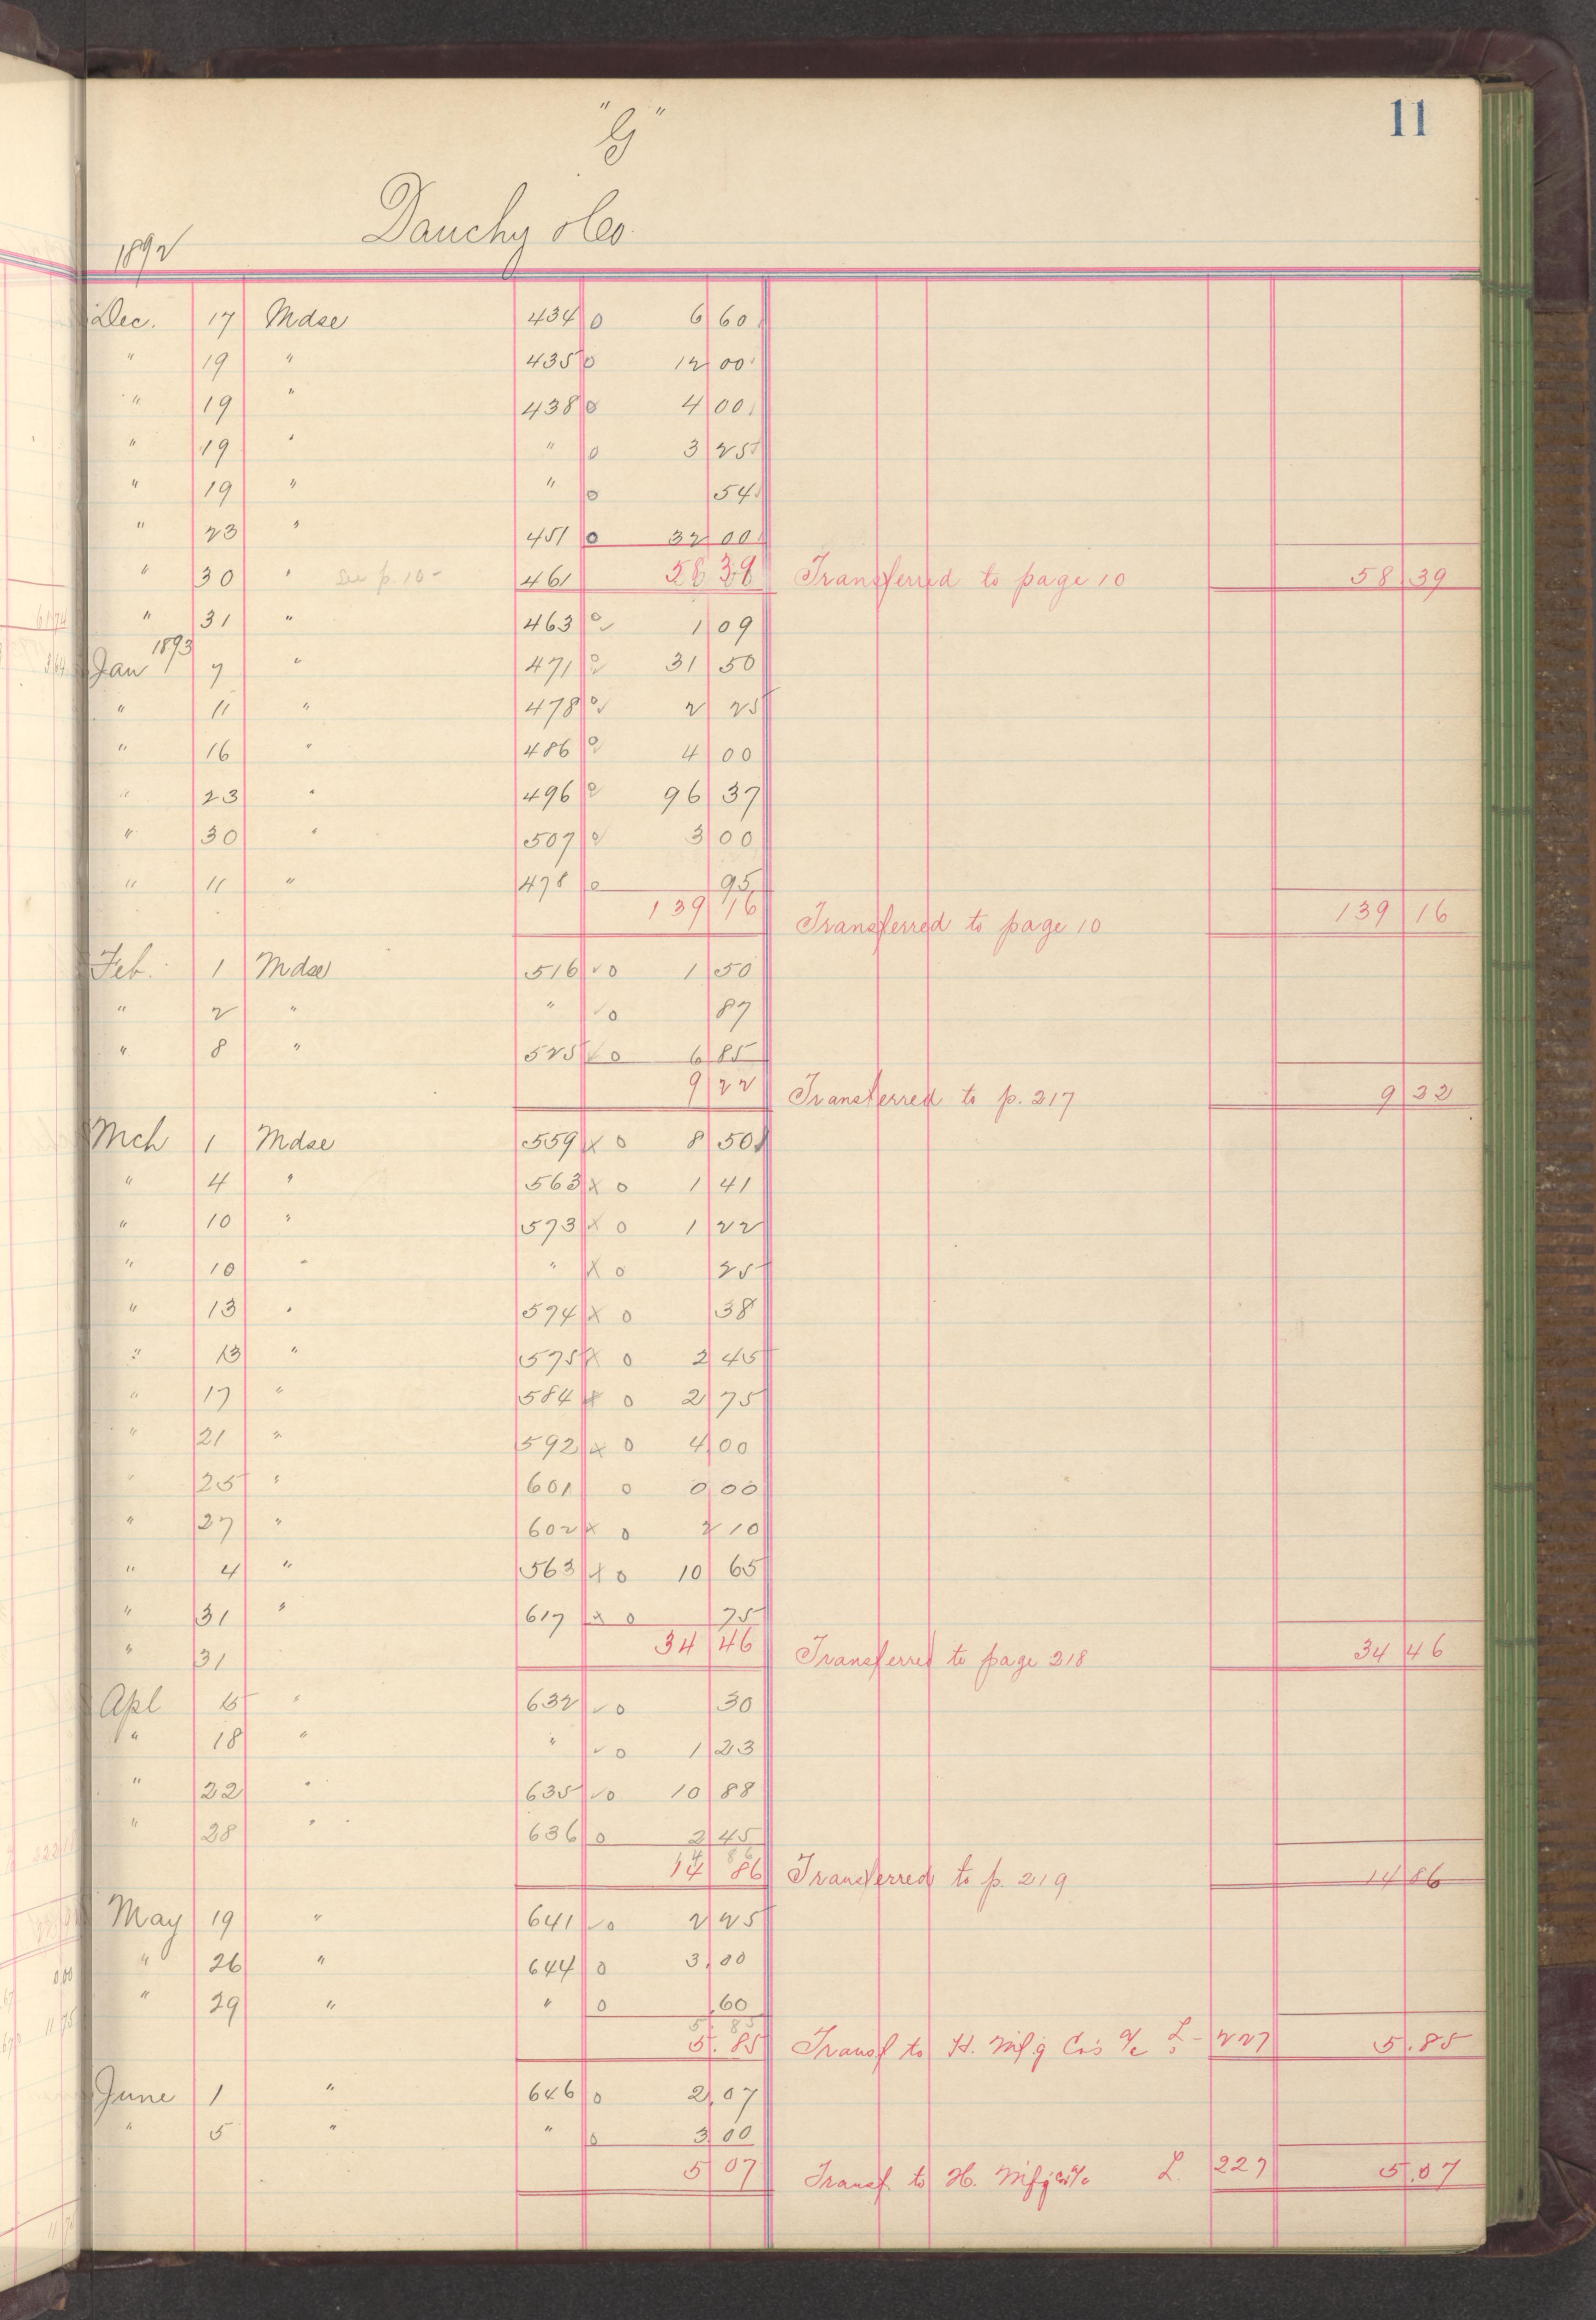 11
"G"
Dauchy & Co.
1892
Dec. 17 Mdse 434 0 6 60
" 19 " 435 0 12 00
" 19 " 438 0 4 00
" 19 " " 0 3 25
" 19 " " 0 54
" 23 " 451 0 32 00
" 30 " See p. 10 - 461 58 39 Transferred to page 10 58 39
" 31 " 463 0 ✓ 1 09
1893
Jan 7 " 471 0 ✓ 31 50
" 11 " 478 0 ✓ 2 25
" 16 " 486 0 ✓ 4 00
" 23 " 496 0 ✓ 96 37
" 30 " 507 0 ✓ 3 00
" 11 " 478 0 95
139 16 Transferred to page 10 139 16
Feb. 1 Mdse 516 ✓ 0 1 50
" 2 " " ✓ 0 87
" 8 " 525 ✓ 0 6 85
9 22 Transferred to p. 217 9 22
Mch 1 Mdse 559 x 0 8 50
" 4 " 563 x 0 1 41
" 10 " 573 x 0 1 22
" 10 " " x 0 25
" 13 " 574 x 0 38
" 13 " 575 x 0 2 45
" 17 " 584 x 0 2 75
" 21 " 592 x 0 4 00
" 25 " 601 0 0 00
" 27 " 602 x 0 2 10
" 4 " 563 x 0 10 65
" 31 " 617 x 0 75
" 31 34 46 Transferred to page 218 34 46
Apl 15 " 632 ✓ 0 30
" 18 " " ✓ 0 1 23
" 22 " 635 ✓ 0 10 88
" 28 " 636 0 2 45
14 86 Transferred to p. 219 14 86
May 19 " 641 ✓ 0 2 25
" 26 " 644 0 3.00
" 29 " " 0 .60
5.85
5.85 Transf to H. Mfg Co's a/c L- 227 5.85
June 1 " 646 0 2.07
" 5 " " 0 3.00
5 07 Transf. to H. Mfg Co's a/c L. 227 5.07